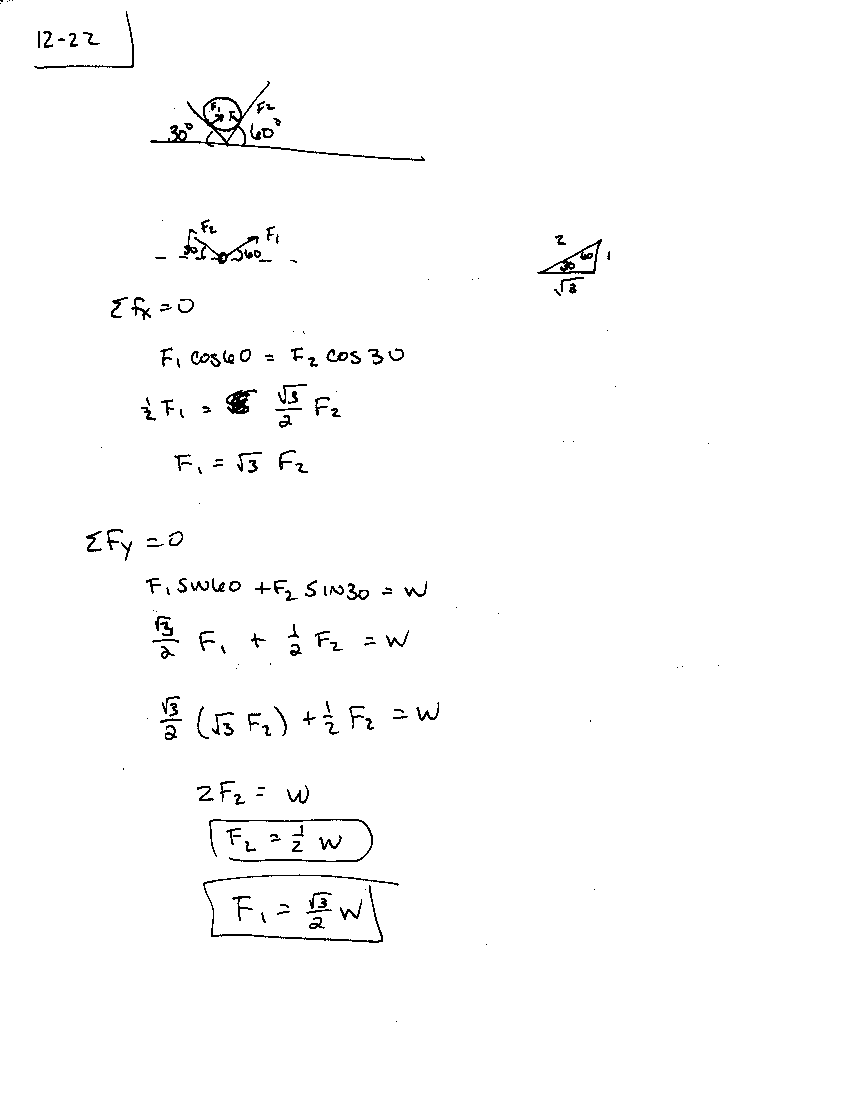 12-22
F₁ F₂
30° 60°
F₂ F₁
30 60
2
30 60 1
√3
ΣFx = 0
F₁ cos60 = F₂ cos30
½ F₁ = √3/2 F₂
F₁ = √3 F₂
ΣFy = 0
F₁ SIN60 + F₂ SIN30 = W
√3/2 F₁ + ½ F₂ = W
√3/2 (√3 F₂) + ½ F₂ = W
2F₂ = W
F₂ = ½ W
F₁ = √3/2 W